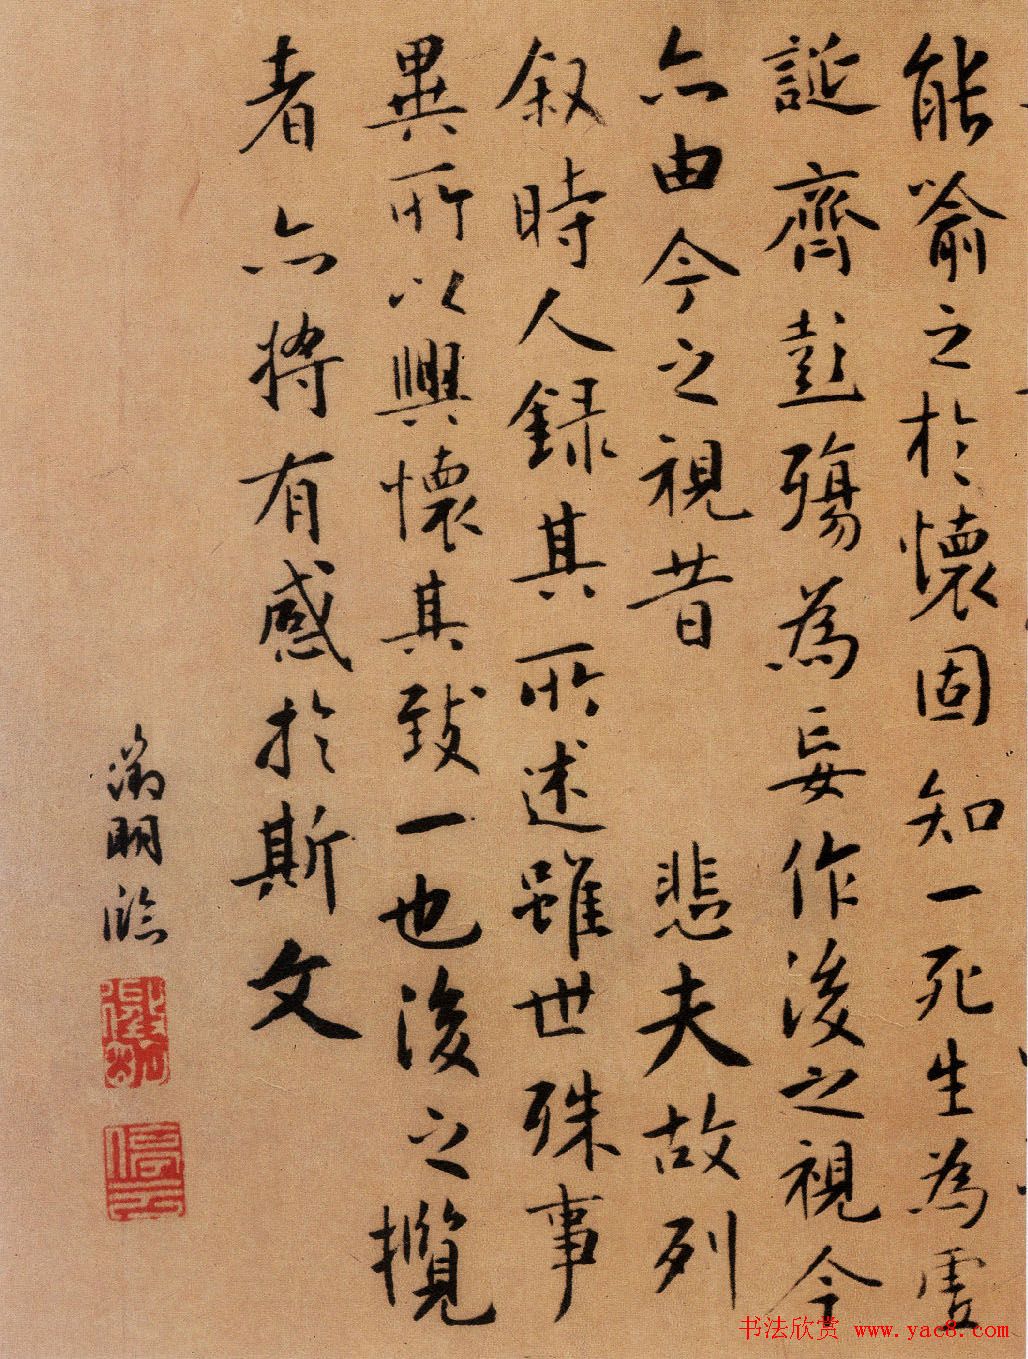 能喻之於懷固知一死生為虛
誕齊彭殤為妄作後之視今
亦由今之視昔 悲夫故列
叙時人錄其所述雖世殊事
異所以興懷其致一也後之攬
者亦將有感於斯文
徵明臨
徵明
停云
书法欣赏 www.yac8.com